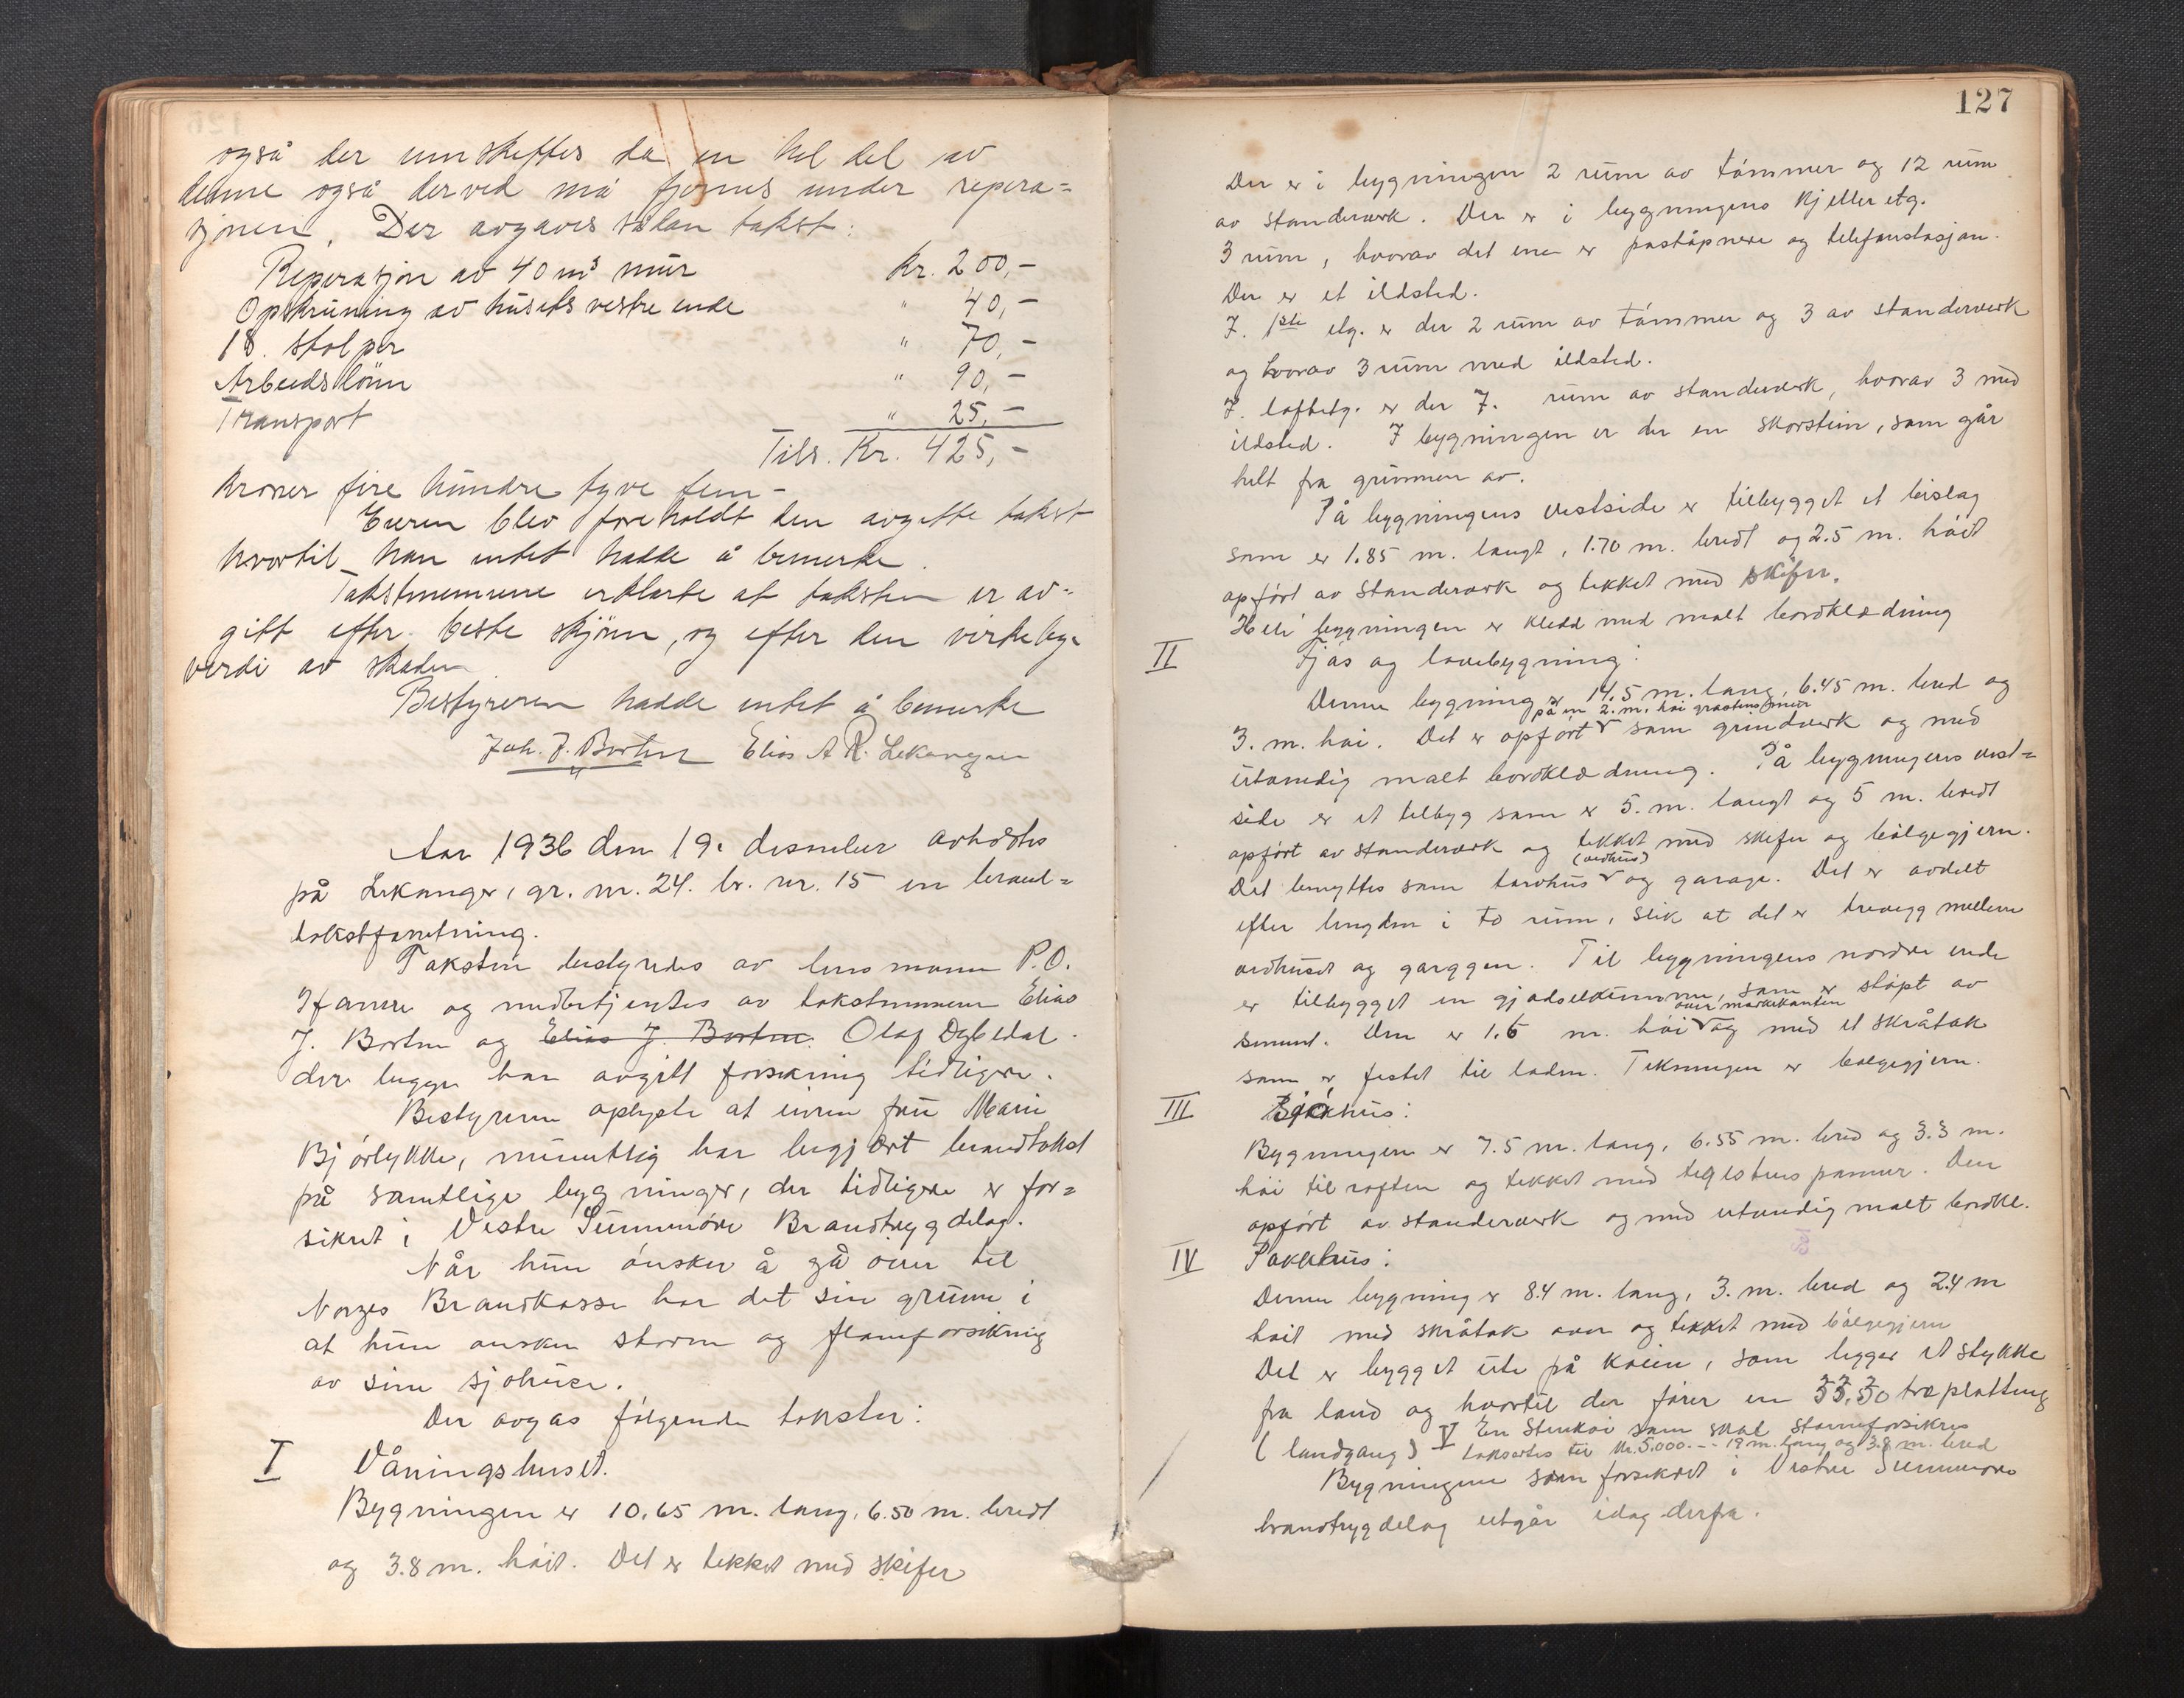 også der umskiftes da en hel del av
denne også derved må fjernes under repera=
sjonen. Der avgaves sådan takst:
Reperasjon av 40 m³ mur Kr. 200,-
Opskruning av husets vestre ende " 40,-
18. stolper " 70,-
Arbeidslönn " 90,-
Transport " 25,-
Tils. Kr. 425,-
Kroner fire hundre tyve fem -
Eieren blev foreholdt den avgitte takst
hvortil han intet hadde å bemerke.
Takstmennene erklærte at taksten er av=
gitt efter beste skjönn, og efter den virkelige
verdi av skaden
Bestyreren hadde intet å bemerke
Joh. J. Borten Elias A R. Lekanger
Aar 1936 den 19. desember avholdtes
på Lekanger, gr. nr. 24. br. nr. 15 en brand=
takstforretning.
Taksten bestyredes av lensmann P.O.
Hamre og medbetjentes av takstmennene Elias
J. Borten og Elias J. Borten. Olaf Dybedal.
der begge har avgitt forsikring tidligere.
Bestyreren oplyste at eieren fru Marie
Bjørlykke, muntlig har begjært brandtakst
på samtlige bygninger, der tidligere er for=
sikret i Vestre Sunnmøre Brandtrygdelag.
Når hun ønsker å gå over til
Norges Brandkasse har det sin grunn i
at hun ønsker storm og flomforsikring
av sine sjøhuse.
Der avgas følgende takster:
I Våningshuset.
Bygningen er 10.65 m. lang, 6.50 m. bredt
og 3.8 m. høit. Det er tekket med skifer
127
Der er i bygningen 2 rum av tømmer og 12 rum
av standerværk. Der er i bygningens kjelleretg.
3 rum, hvorav det ene er poståpneri og telefonstasjon.
Der er et ildsted.
I. 1ste etg. er der 2 rum av tømmer og 3 av standerverk
og hvorav 3 rum med ildsted.
I. loftetg. er der 7. rum av standerverk, hvorav 3 med
ildsted. I bygningen er der en skorstein, som går
helt fra grunnen av.
På bygningens vestside er tilbygget et bislag
som er 1.85 m. langt, 1.70 m. bredt og 2.5 m. høit
opført av standerverk og tekket med skifer.
Hele bygningen er kledd med malt bordklædning
II Fjøs og løebygning:
Denne bygning er 14.5 m. lang, 6.45 m. bred og
på en 2. m. høi gråstens mur
3. m. høi. Det er opført som grindverk og med
utvendig malt bordklædning. På bygningens vest=
side er et tilbyg som er 5. m. langt og 5 m. bredt
opført av standerværk og tekket med skifer og bølgegjern.
(vedhus)
Det benyttes som torvhus og garage. Det er avdelt
efter lengden i to rum, slik at det er trevegg mellem
vedhuset og garagen. Til bygningens nordre ende
er tilbygget en gjødselkum, som er støpt av
over markekanten
sement. Den er 1.6 m. høi og med et skråtak
som er festet til laden. Tekningen er bølgegjern.
III Sjøhus:
Bygningen er 7.5 m. lang, 6.55 m. bred og 3.3 m.
høi til raften og tekket med teglstens panner. Den
opført av standerværk og med utvendig malt bordkl.
IV Pakkhus:
Denne bygning er 8.4 m. lang, 3. m. bred og 2.4 m
høit med skråtak over og tekket med bølgegjern
Det er bygget ute på kaien, som ligger et stykke
fra land og hvortil der fører en træplatting
(landgang) V En Stenkai som skal stormforsikres
taksertes til kr. 5.000.-- 19 m. lang og 3.8 m. bred
Bygningene som forsikret i Vestre Sunnmøre
brandtrygdelag utgår idag derfra.